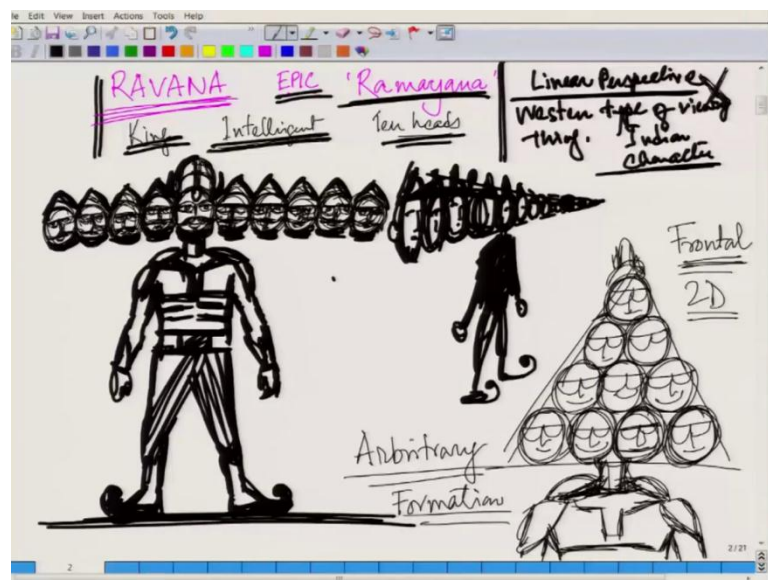 le Edit View Insert Actions Tools Help
RAVANA EPIC 'Ramayana'
King Intelligent Ten heads
Linear Perspective
Western type of viewing
Thing. Indian
Character
Frontal
2D
Arbitrary
Formation
2/21
2